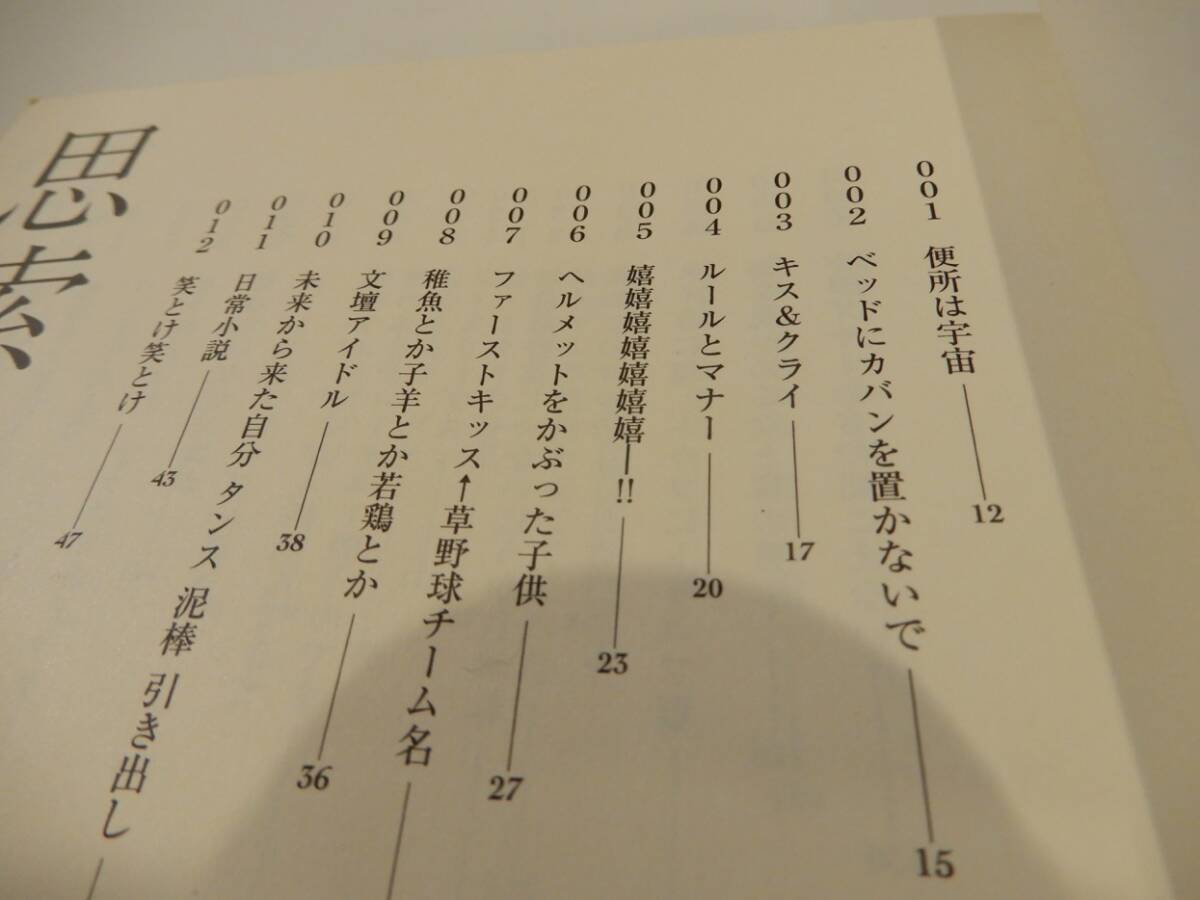 001 便所は宇宙 12
002 ベッドにカバンを置かないで 15
003 キス&クライ 17
004 ルールとマナー 20
005 嬉嬉嬉嬉嬉嬉嬉ー!! 23
006 ヘルメットをかぶった子供 27
007 ファーストキッス↑草野球チーム名
008 稚魚とか子羊とか若鶏とか 36
009 文壇アイドル 38
010 未来から来た自分 タンス 泥棒 引き出し
011 日常小説 43
012 笑とけ笑とけ 47
思索